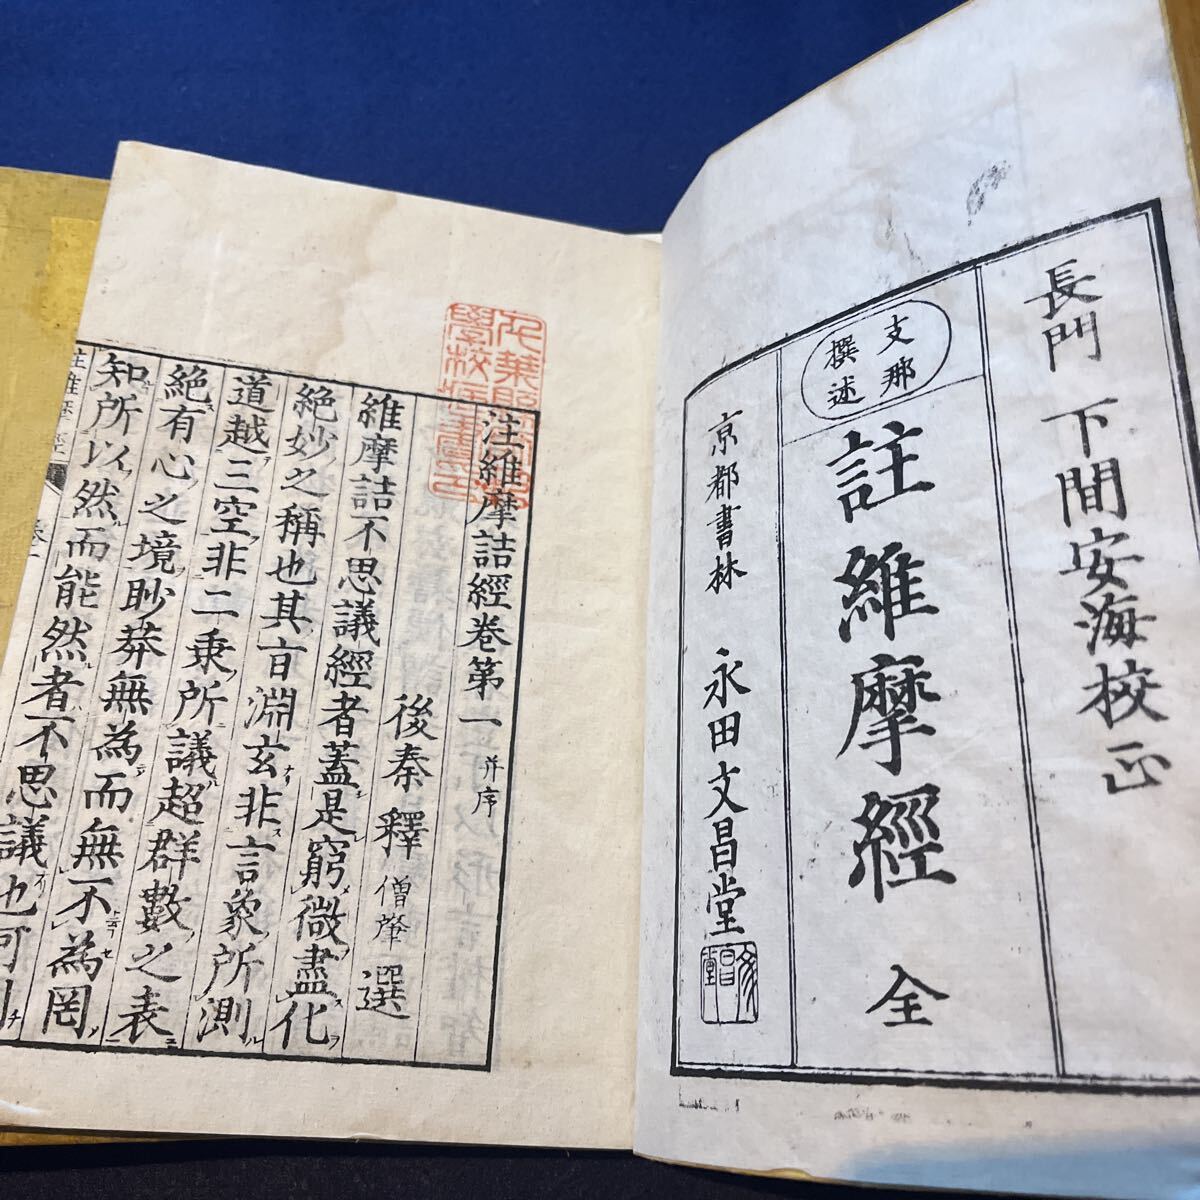 長門 下間安海校正
支那
撰述
註維摩經 全
京都書林 永田文昌堂
文昌堂
注維摩詰經卷第一 并序
後秦釋僧肇選
維摩詰不思議經者蓋是窮微盡化
絶妙之稱也其旨淵玄非言象所測
道越三空非二乗所議超群數之表
絶有心之境眇莽無為而無不為罔
知所以然而能然者不思議也何則
注維摩經